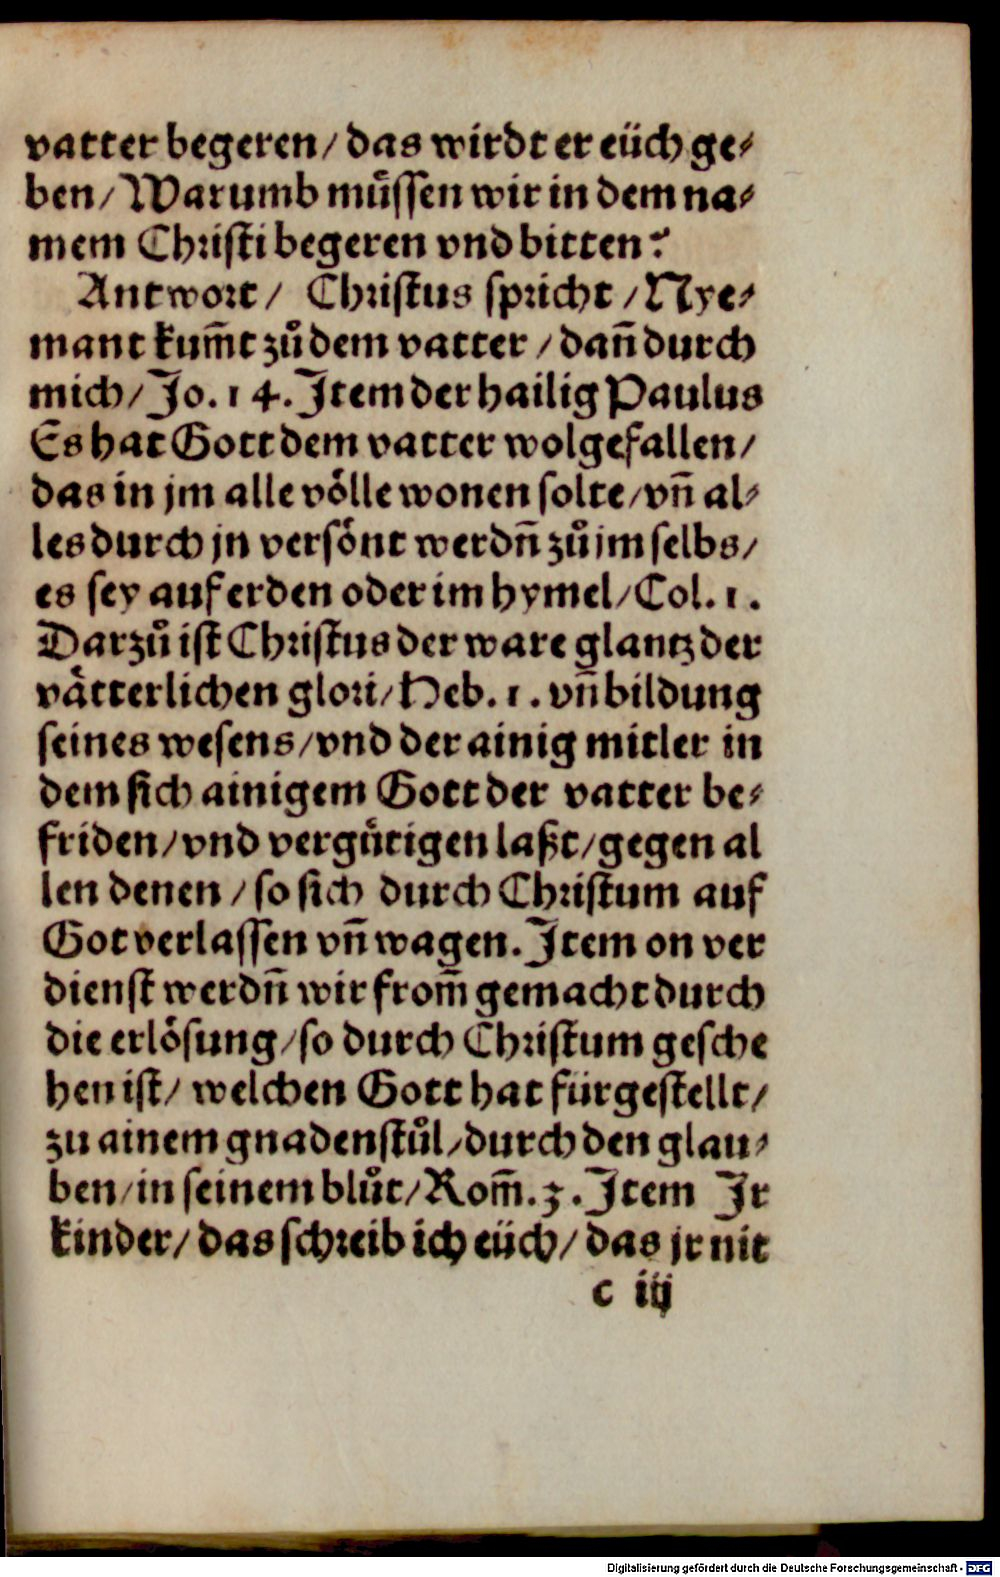 vatter begeren/ das wirdt er eüch ge⸗
ben/ Warumb müssen wir in dem na⸗
mem Christi begeren vnd bitten?
Antwort/ Christus spricht/ Nye⸗
mant kum̄t zů dem vatter/ dan̄ durch
mich/ Jo. 14. Item der hailig Paulus
Es hat Gott dem vatter wolgefallen/
das in jm alle völle wonen solte/ vn̄ al⸗
les durch jn versönt werdn̄ zů jm selbs/
es sey auf erden oder im hymel/ Col. 1.
Darzů ist Christus der ware glantz der
vätterlichen glori/ Heb. 1. vn̄ bildung
seines wesens/ vnd der ainig mitler in
dem sich ainigem Gott der vatter be⸗
friden/ vnd vergütigen laßt/ gegen al
len denen/ so sich durch Christum auf
Got verlassen vn̄ wagen. Item on ver
dienst werdn̄ wir from̄ gemacht durch
die erlösung/ so durch Christum gesche
hen ist/ welchen Gott hat fürgestellt/
zu ainem gnadenstůl/ durch den glau⸗
ben/ in seinem blůt/ Rom̄. 3. Item Ir
kinder/ das schreib ich eüch/ das jr nit
c iij
Digitalisierung gefördert durch die Deutsche Forschungsgemeinschaft - DFG